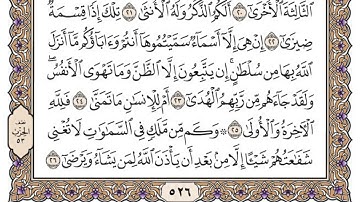 ٱلثَّالِثَةَ ٱلْأُخْرَىٰٓ ٢٠ أَلَكُمُ ٱلذَّكَرُ وَلَهُ ٱلْأُنثَىٰ ٢١ تِلْكَ إِذًا قِسْمَةٌ
ضِيزَىٰٓ ٢٢ إِنْ هِىَ إِلَّآ أَسْمَآءٌ سَمَّيْتُمُوهَآ أَنتُمْ وَءَابَآؤُكُم مَّآ أَنزَلَ
ٱللَّهُ بِهَا مِن سُلْطَـٰنٍ ۚ إِن يَتَّبِعُونَ إِلَّا ٱلظَّنَّ وَمَا تَهْوَى ٱلْأَنفُسُ ۖ
وَلَقَدْ جَآءَهُم مِّن رَّبِّهِمُ ٱلْهُدَىٰٓ ٢٣ أَمْ لِلْإِنسَـٰنِ مَا تَمَنَّىٰ ٢٤ فَلِلَّهِ
ٱلْـَٔاخِرَةُ وَٱلْأُولَىٰ ٢٥ ۞ وَكَم مِّن مَّلَكٍ فِى ٱلسَّمَـٰوَٰتِ لَا تُغْنِى
شَفَـٰعَتُهُمْ شَيْـًٔا إِلَّا مِنۢ بَعْدِ أَن يَأْذَنَ ٱللَّهُ لِمَن يَشَآءُ وَيَرْضَىٰٓ ٢٦
نصف
الحزب
٥٣
٥٢٦